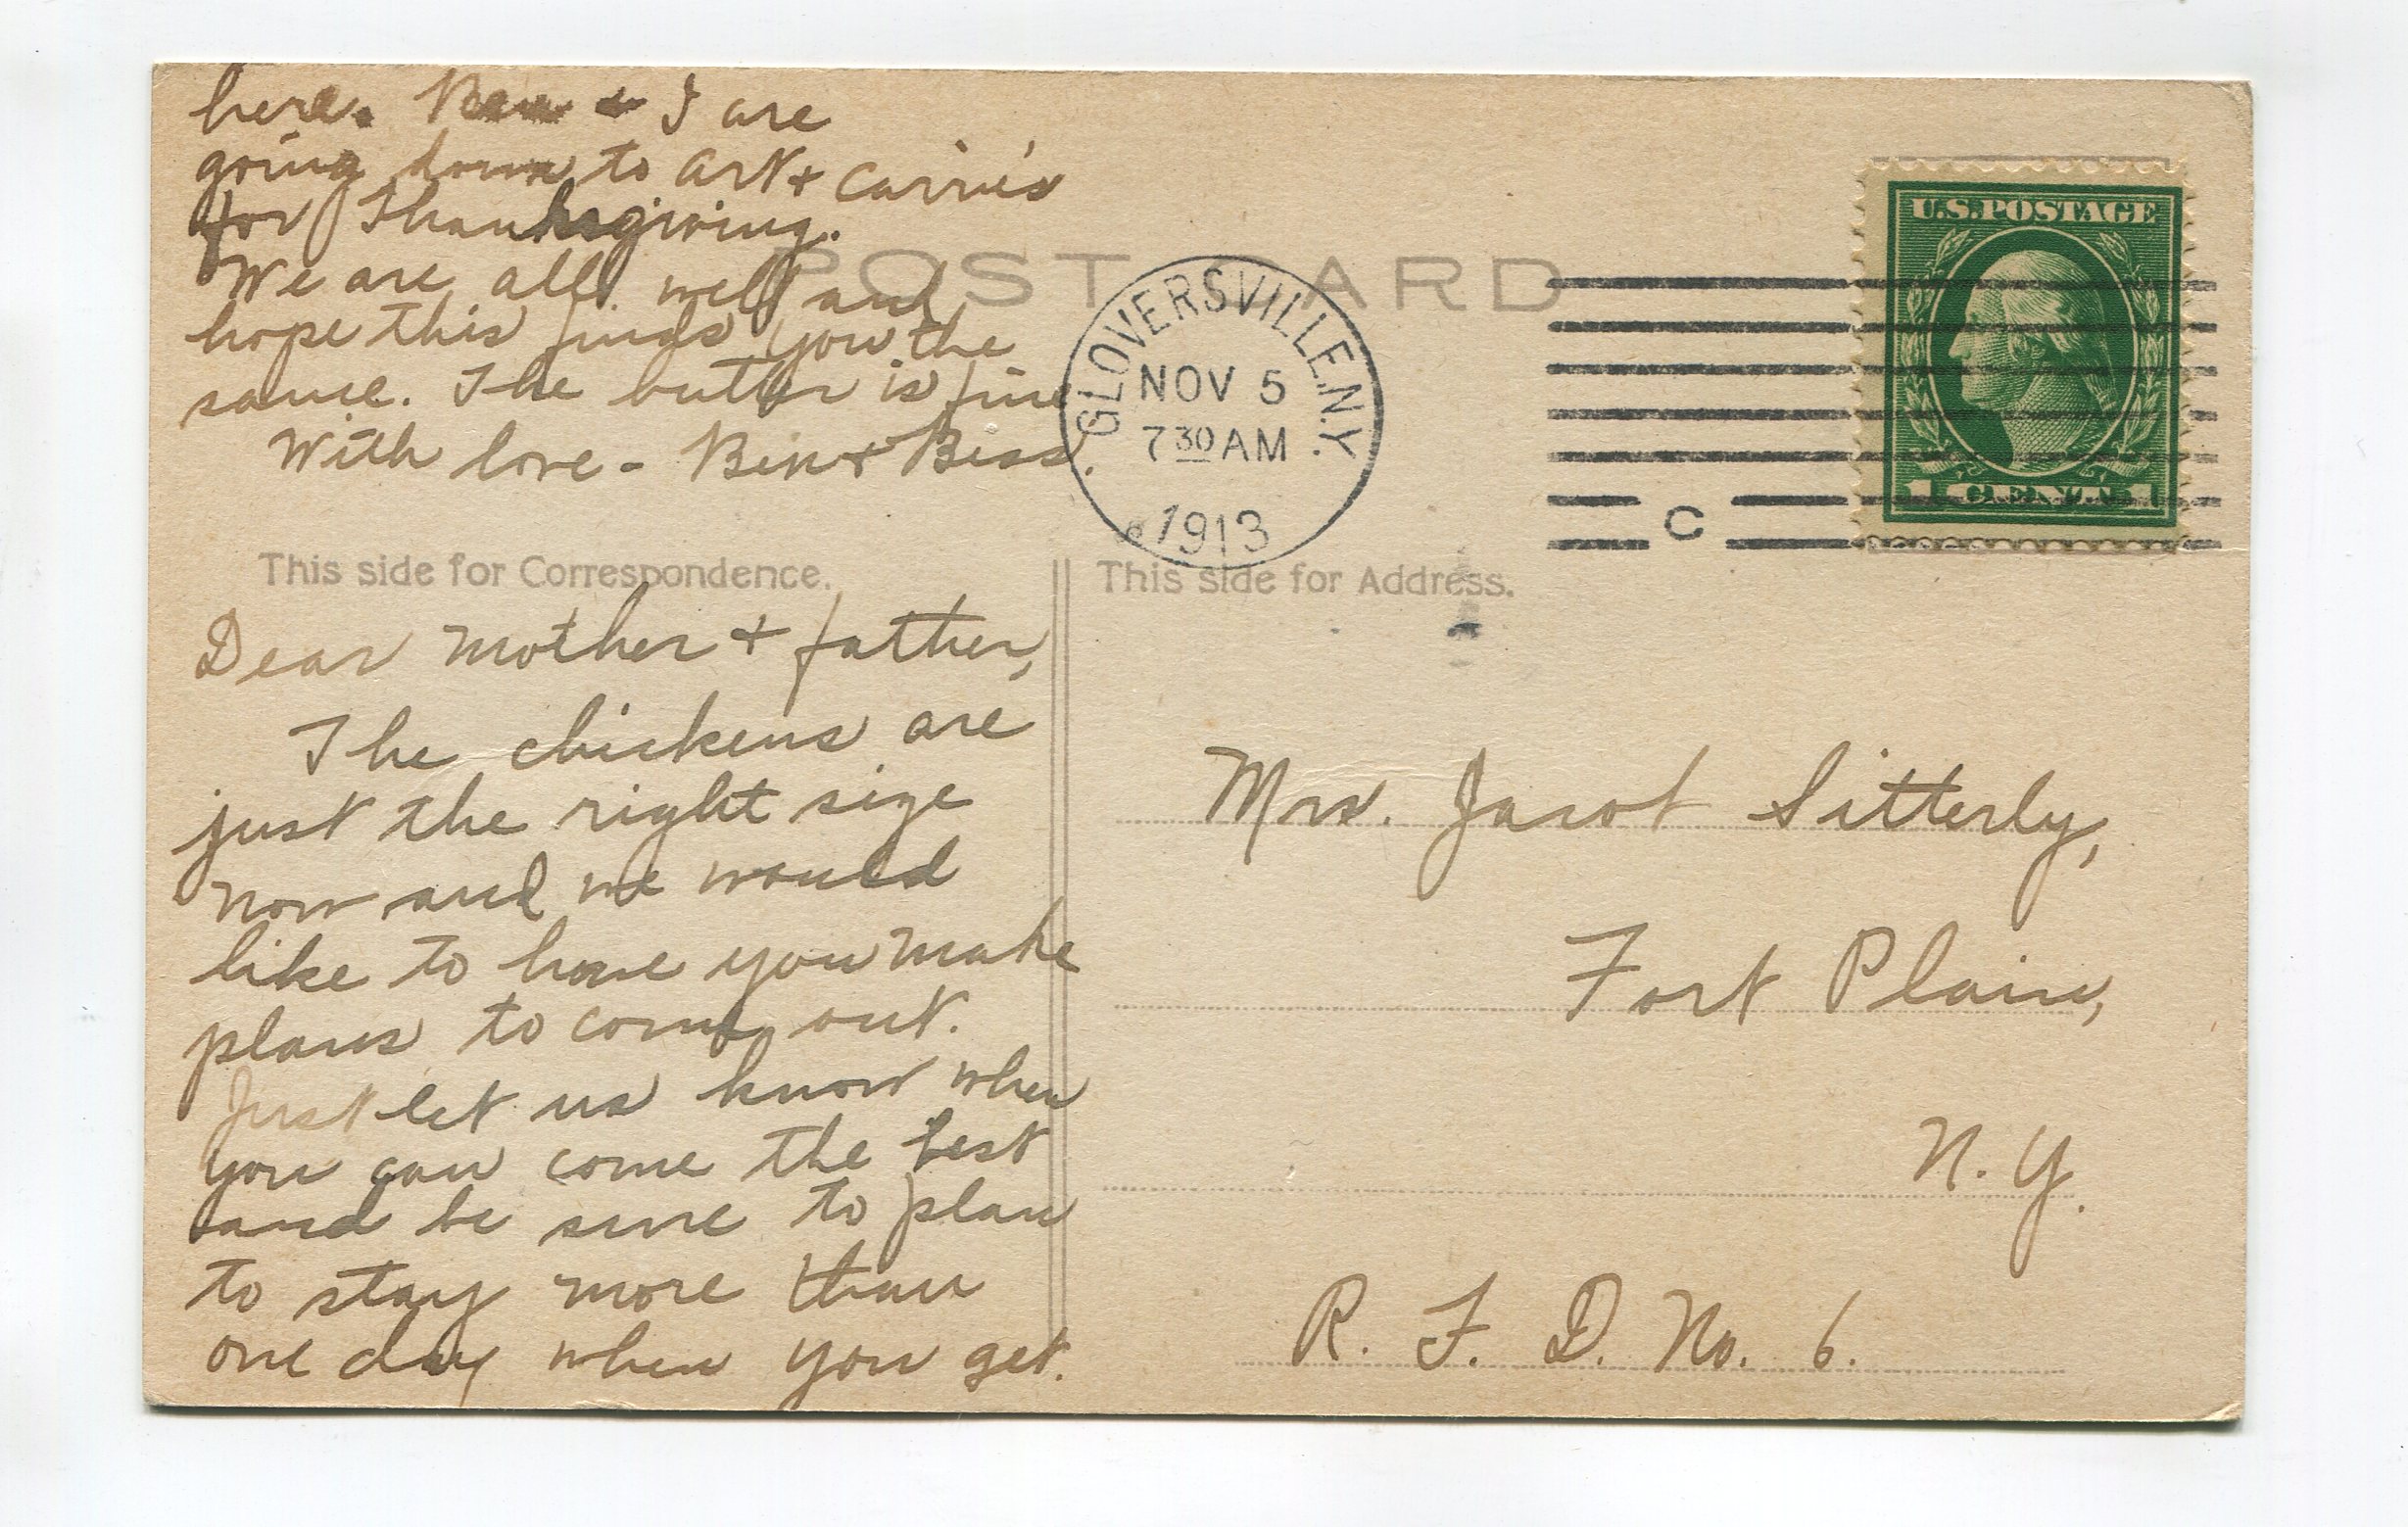 here. Ben & I are
going down to Art & Carrie's
for Thanksgiving.
We are all well and
hope this finds you the
same. The butter is fine
With love - Ben & Bess.
POST CARD
GLOVERSVILLE, N.Y.
NOV 5
7 30 AM
1913
C
U.S. POSTAGE
1 CENT 1
This side for Correspondence.
Dear Mother & father,
The chickens are
just the right size
now and we would
like to have you make
plans to come out.
Just let us know when
you can come the best
and be sure to plan
to stay more than
one day when you get.
This side for Address.
Mrs. Jacob Sitterly,
Fort Plain,
N. Y.
R. F. D. No. 6.